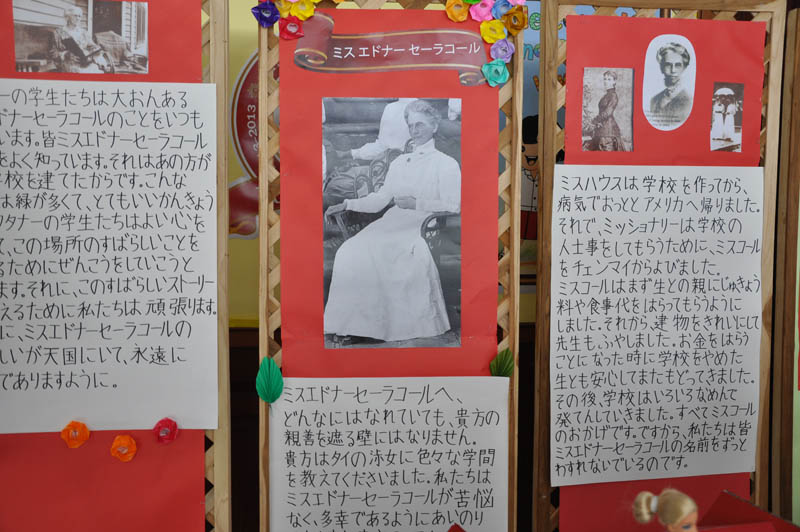 ーの学生たちは大おんある
ドナーセーラコールのことをいつも
います。皆ミスエドナーセーラコール
をよく知っています。それはあの方が
学校を建てたからです。こんな
は緑が多くて、とてもいいかんきょう
ワタナーの学生たちはよい心を
て、この場所のすばらしいことを
るためにぜんこうをしていこうと
ます。それに、このすばらしいストーリー
えるために私たちは頑張ります。
に、ミスエドナーセーラコールの
しいが天国にいて、永遠に
でありますように。
ミス エドナー セーラコール
ミスエドナーセーラコールへ、
どんなにはなれていても、貴方の
親善を遮る壁にはなりません。
貴方はタイの淑女に色々な学問
を教えてくださいました。私たちは
ミスエドナーセーラコールが苦悩
なく、多幸であるようにあいのり
ミスハウスは学校を作ってから、
病気でおっとと アメリカへ帰りました。
それで、ミッショナリーは学校の
人士事をしてもらうために、ミスコール
をチェンマイからよびました。
ミスコールはまず生との親にじゅきょう
料や食事代をはらってもらうように
しました。それから、建物をきれいにして
先生も、ふやしました。お金をはらう
ことになった時に学校をやめた
生とも安心してまたもどってきました。
その後、学校はいろいろなめんで
発てんしていきました。すべてミスコール
のおかげです。ですから、私たちは皆
ミスエドナーセーラコールの名前をずっと
わすれないでいるのです。
2013